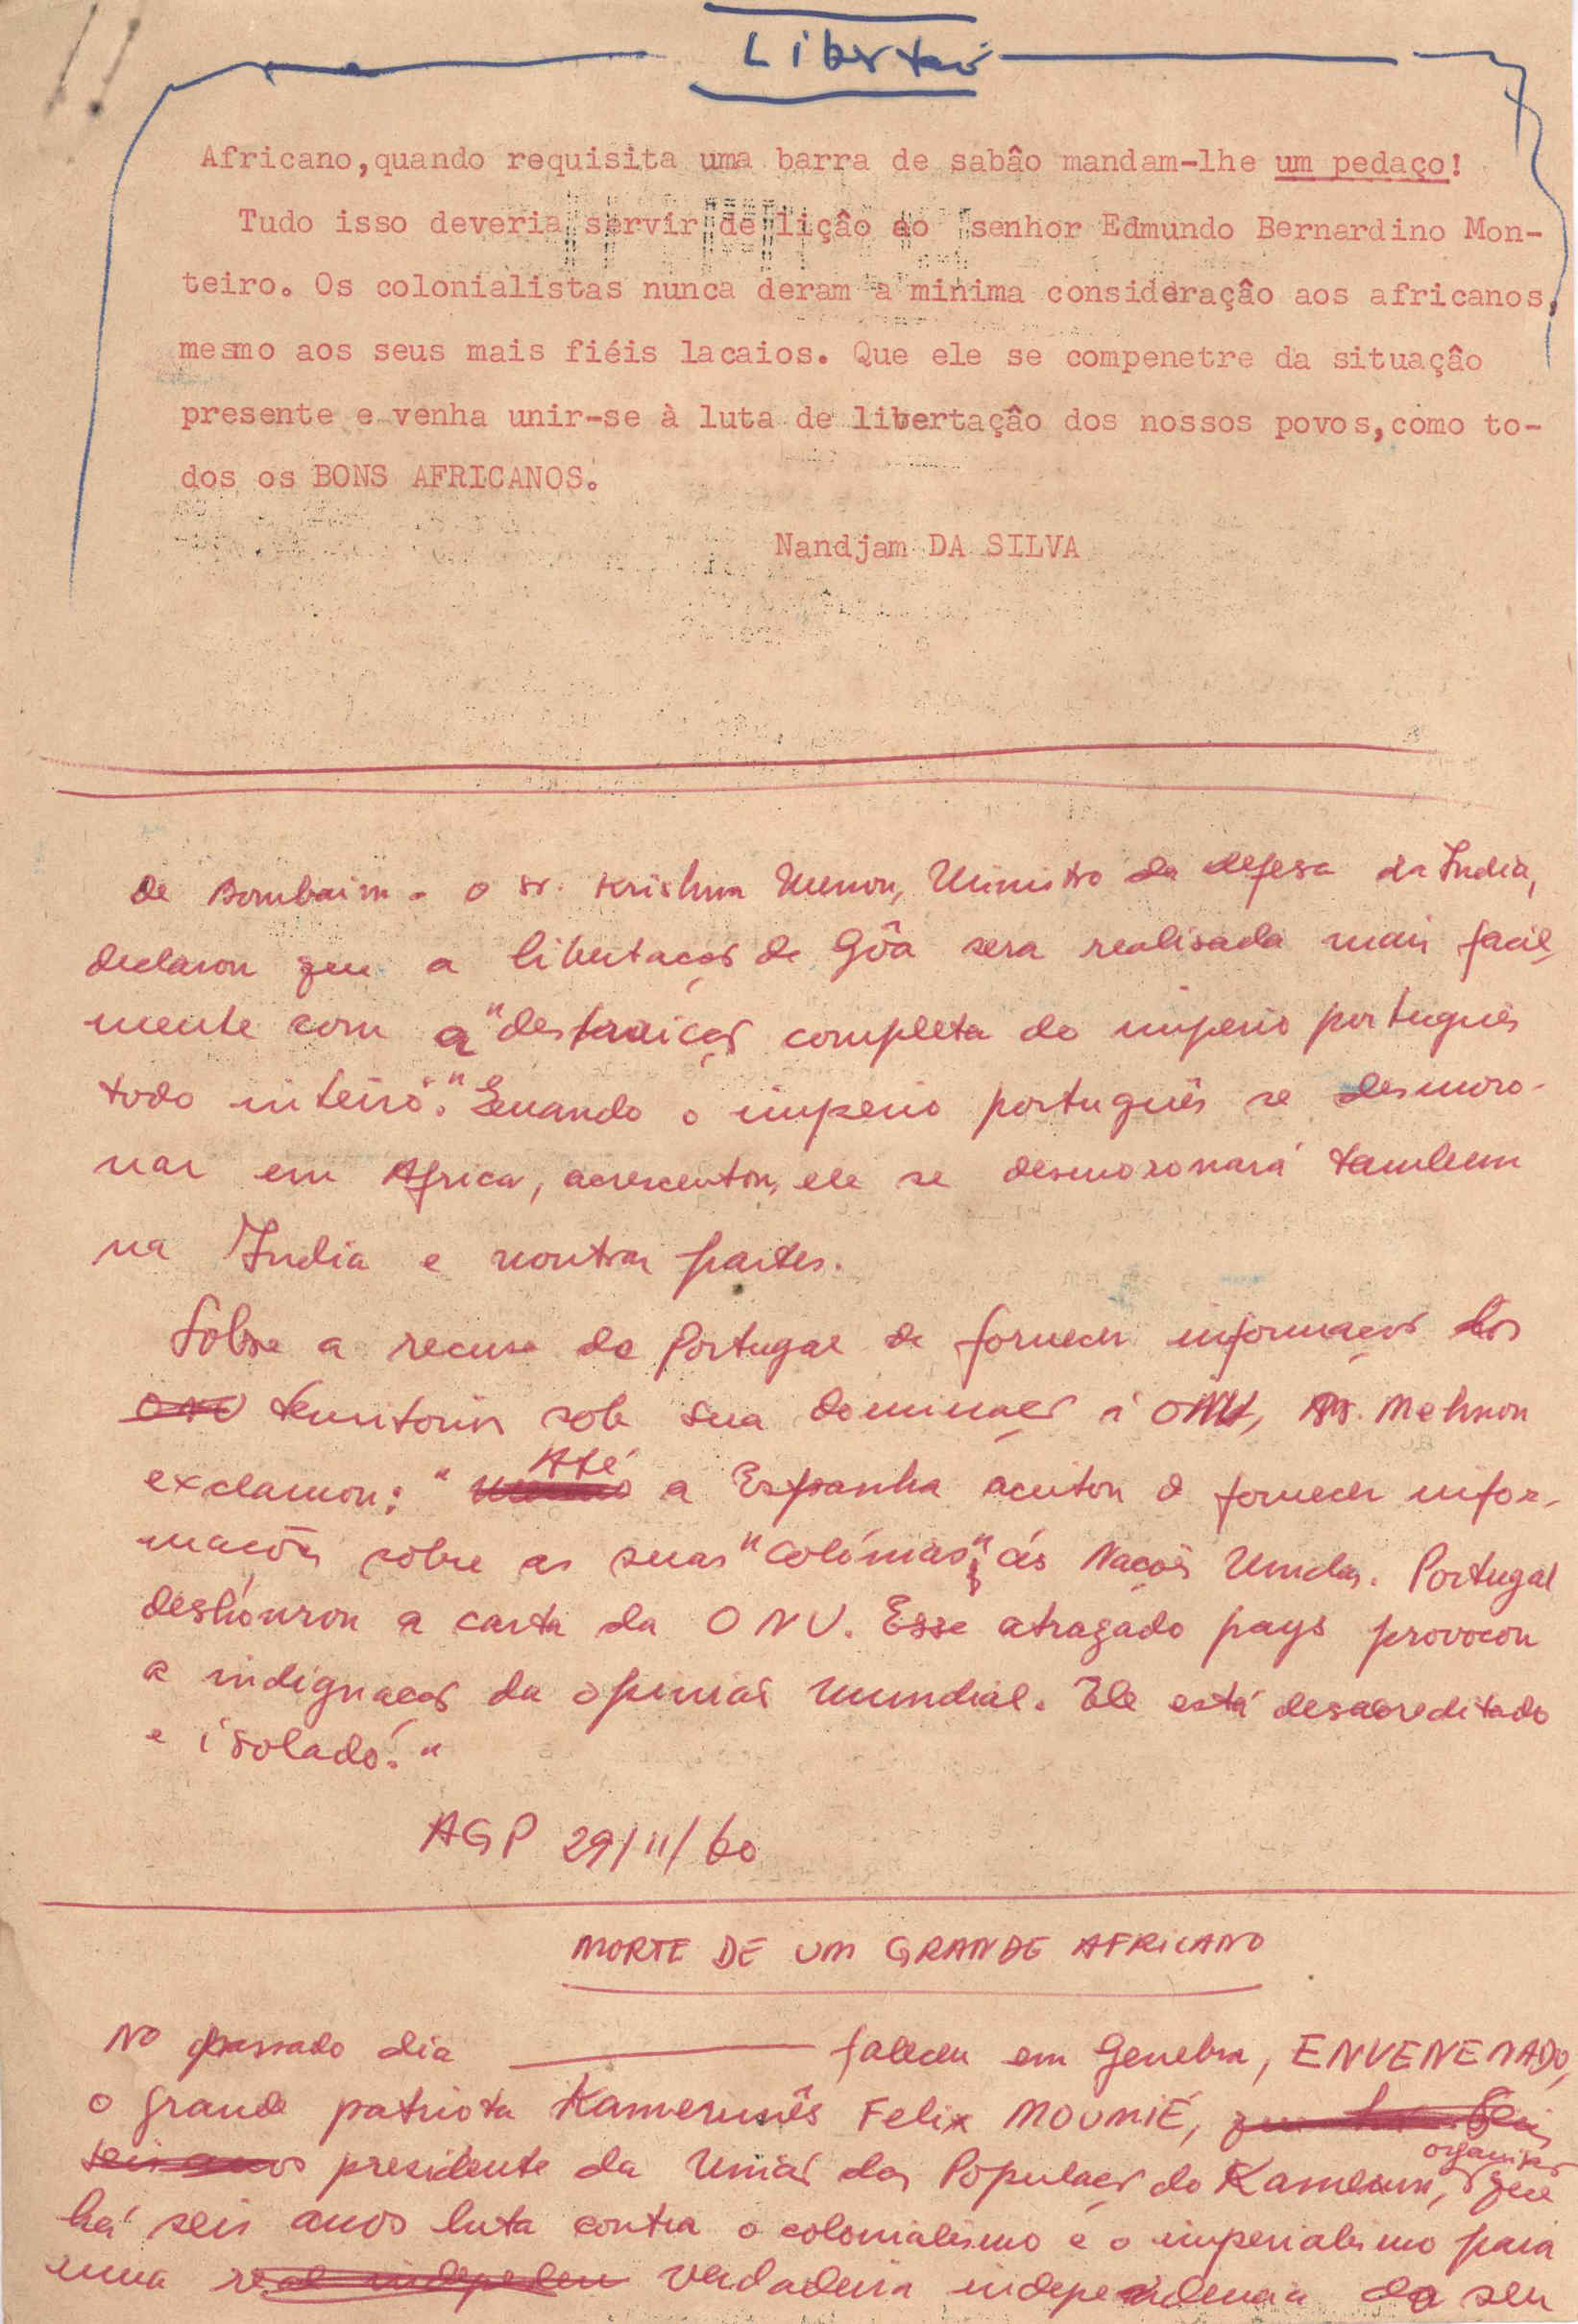 Libertaō
Africano,quando requisita uma barra de sabâo mandam-lhe um pedaço!
Tudo isso deveria servir de liçâo ao senhor Edmundo Bernardino Mon-
teiro. Os colonialistas nunca deram a minima consideraçâo aos africanos,
mesmo aos seus mais fiéis lacaios. Que ele se compenetre da situaçâo
presente e venha unir-se à luta de libertaçâo dos nossos povos,como to-
dos os BONS AFRICANOS.
Nandjam DA SILVA
de Bombaim - o sr. Krishna Menon, Ministro da defesa da India,
declarou que a libertaçaō de Gôa sera realisada mais facil
mente com a "destruiçaō completa do imperio português
todo inteiro." Quando o imperio português se desmoro-
nar em Africa, acrescentou, ele se desmoronará tambem
na India e noutras partes.
Sobre a recusa de Portugal de fornecer informaçoēs dos
ONU territorios sob sua dominaçaō á ONU, Mr. Mehnon
exclamou: " Até a Espanha aceitou o fornecer infor-
maçoēs sobre as suas "colónias" ás Naçoēs Unidas. Portugal
deshonrou a carta da ONU. Esse atrazado pays provocou
a indignaçaō da opiniaō mundial. Ele está desacreditado
e isolado!"
AGP 29/11/60
MORTE DE UM GRANDE AFRICANO
No passado dia ——— faleceu em Genebra, ENVENENADO,
o grande patriota Kamerunês Felix MOUMIÉ,
seis anos presidente da Uniaō das Populaçoēs do Kamerun, organisaçaō que
há seis anos luta contra o colonialismo e o imperialismo para
uma real indepeden verdadeira independencia do seu